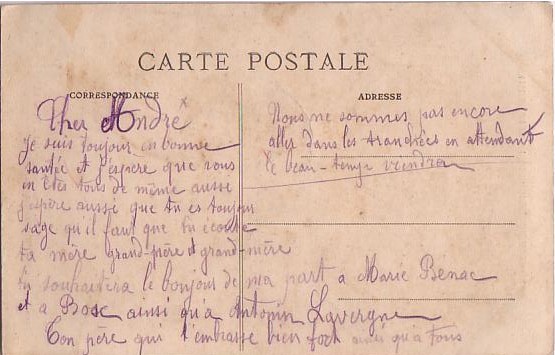 CARTE POSTALE
CORRESPONDANCE
Cher André
Je suis toujour en bonne
santée et j'espère que vous
en êtes tous de même aussi
j'espère aussi que tu es toujour
sage qu'il faut que tu écoute
ta mère grand-père et grand-mère
tu souhaitera le bonjour de ma part a Marie Bénac
et a Bosc ainsi qu'a Antonin Lavergne
Ton père qui t'embrasse bien fort ainsi qu'a Tous
ADRESSE
Nous ne sommes pas encore
aller dans les tranchées en attendant
le beau-temps viendra